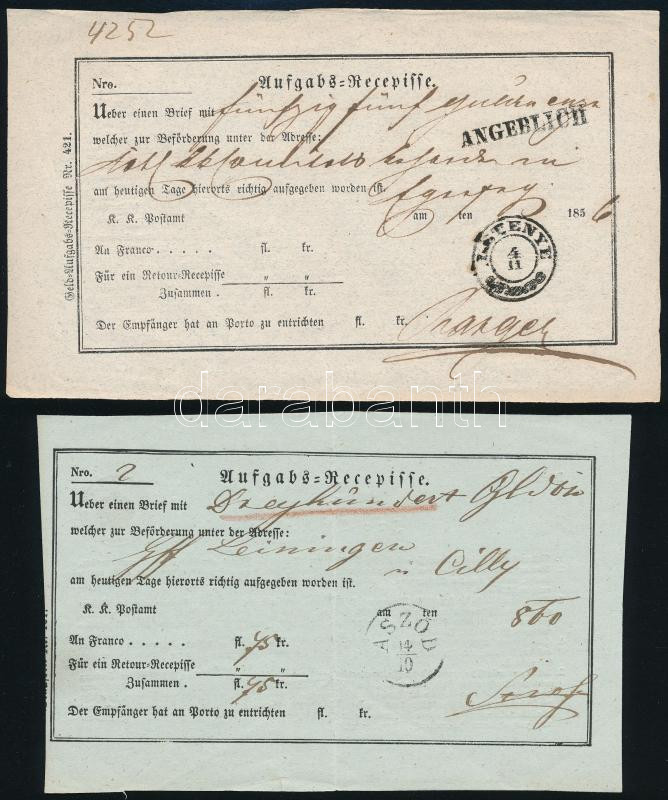 4252
Nro. Aufgabs-Recepisse.
Ueber einen Brief mit fünfzig fünf Gulden
ANGEBLICH
welcher zur Beförderung unter der Adresse:
in
am heutigen Tage hierorts richtig aufgegeben worden ist.
K. K. Postamt am ten 1856
LETENYE
4
11
An Franco . . . . . fl. kr.
Für ein Retour-Recepisse " "
Zusammen . fl. kr.
Der Empfänger hat an Porto zu entrichten fl. kr.
Geld-Aufgabs-Recepisse Nr. 421.
darabanth
Nro. 2 Aufgabs-Recepisse.
Ueber einen Brief mit Dreyhundert
welcher zur Beförderung unter der Adresse:
Leiningen Cilly
am heutigen Tage hierorts richtig aufgegeben worden ist.
K. K. Postamt am ten 860
ASZÓD
14
10
An Franco . . . . . fl. 75 kr.
Für ein Retour-Recepisse " "
Zusammen . fl. 75 kr.
Der Empfänger hat an Porto zu entrichten fl. kr.